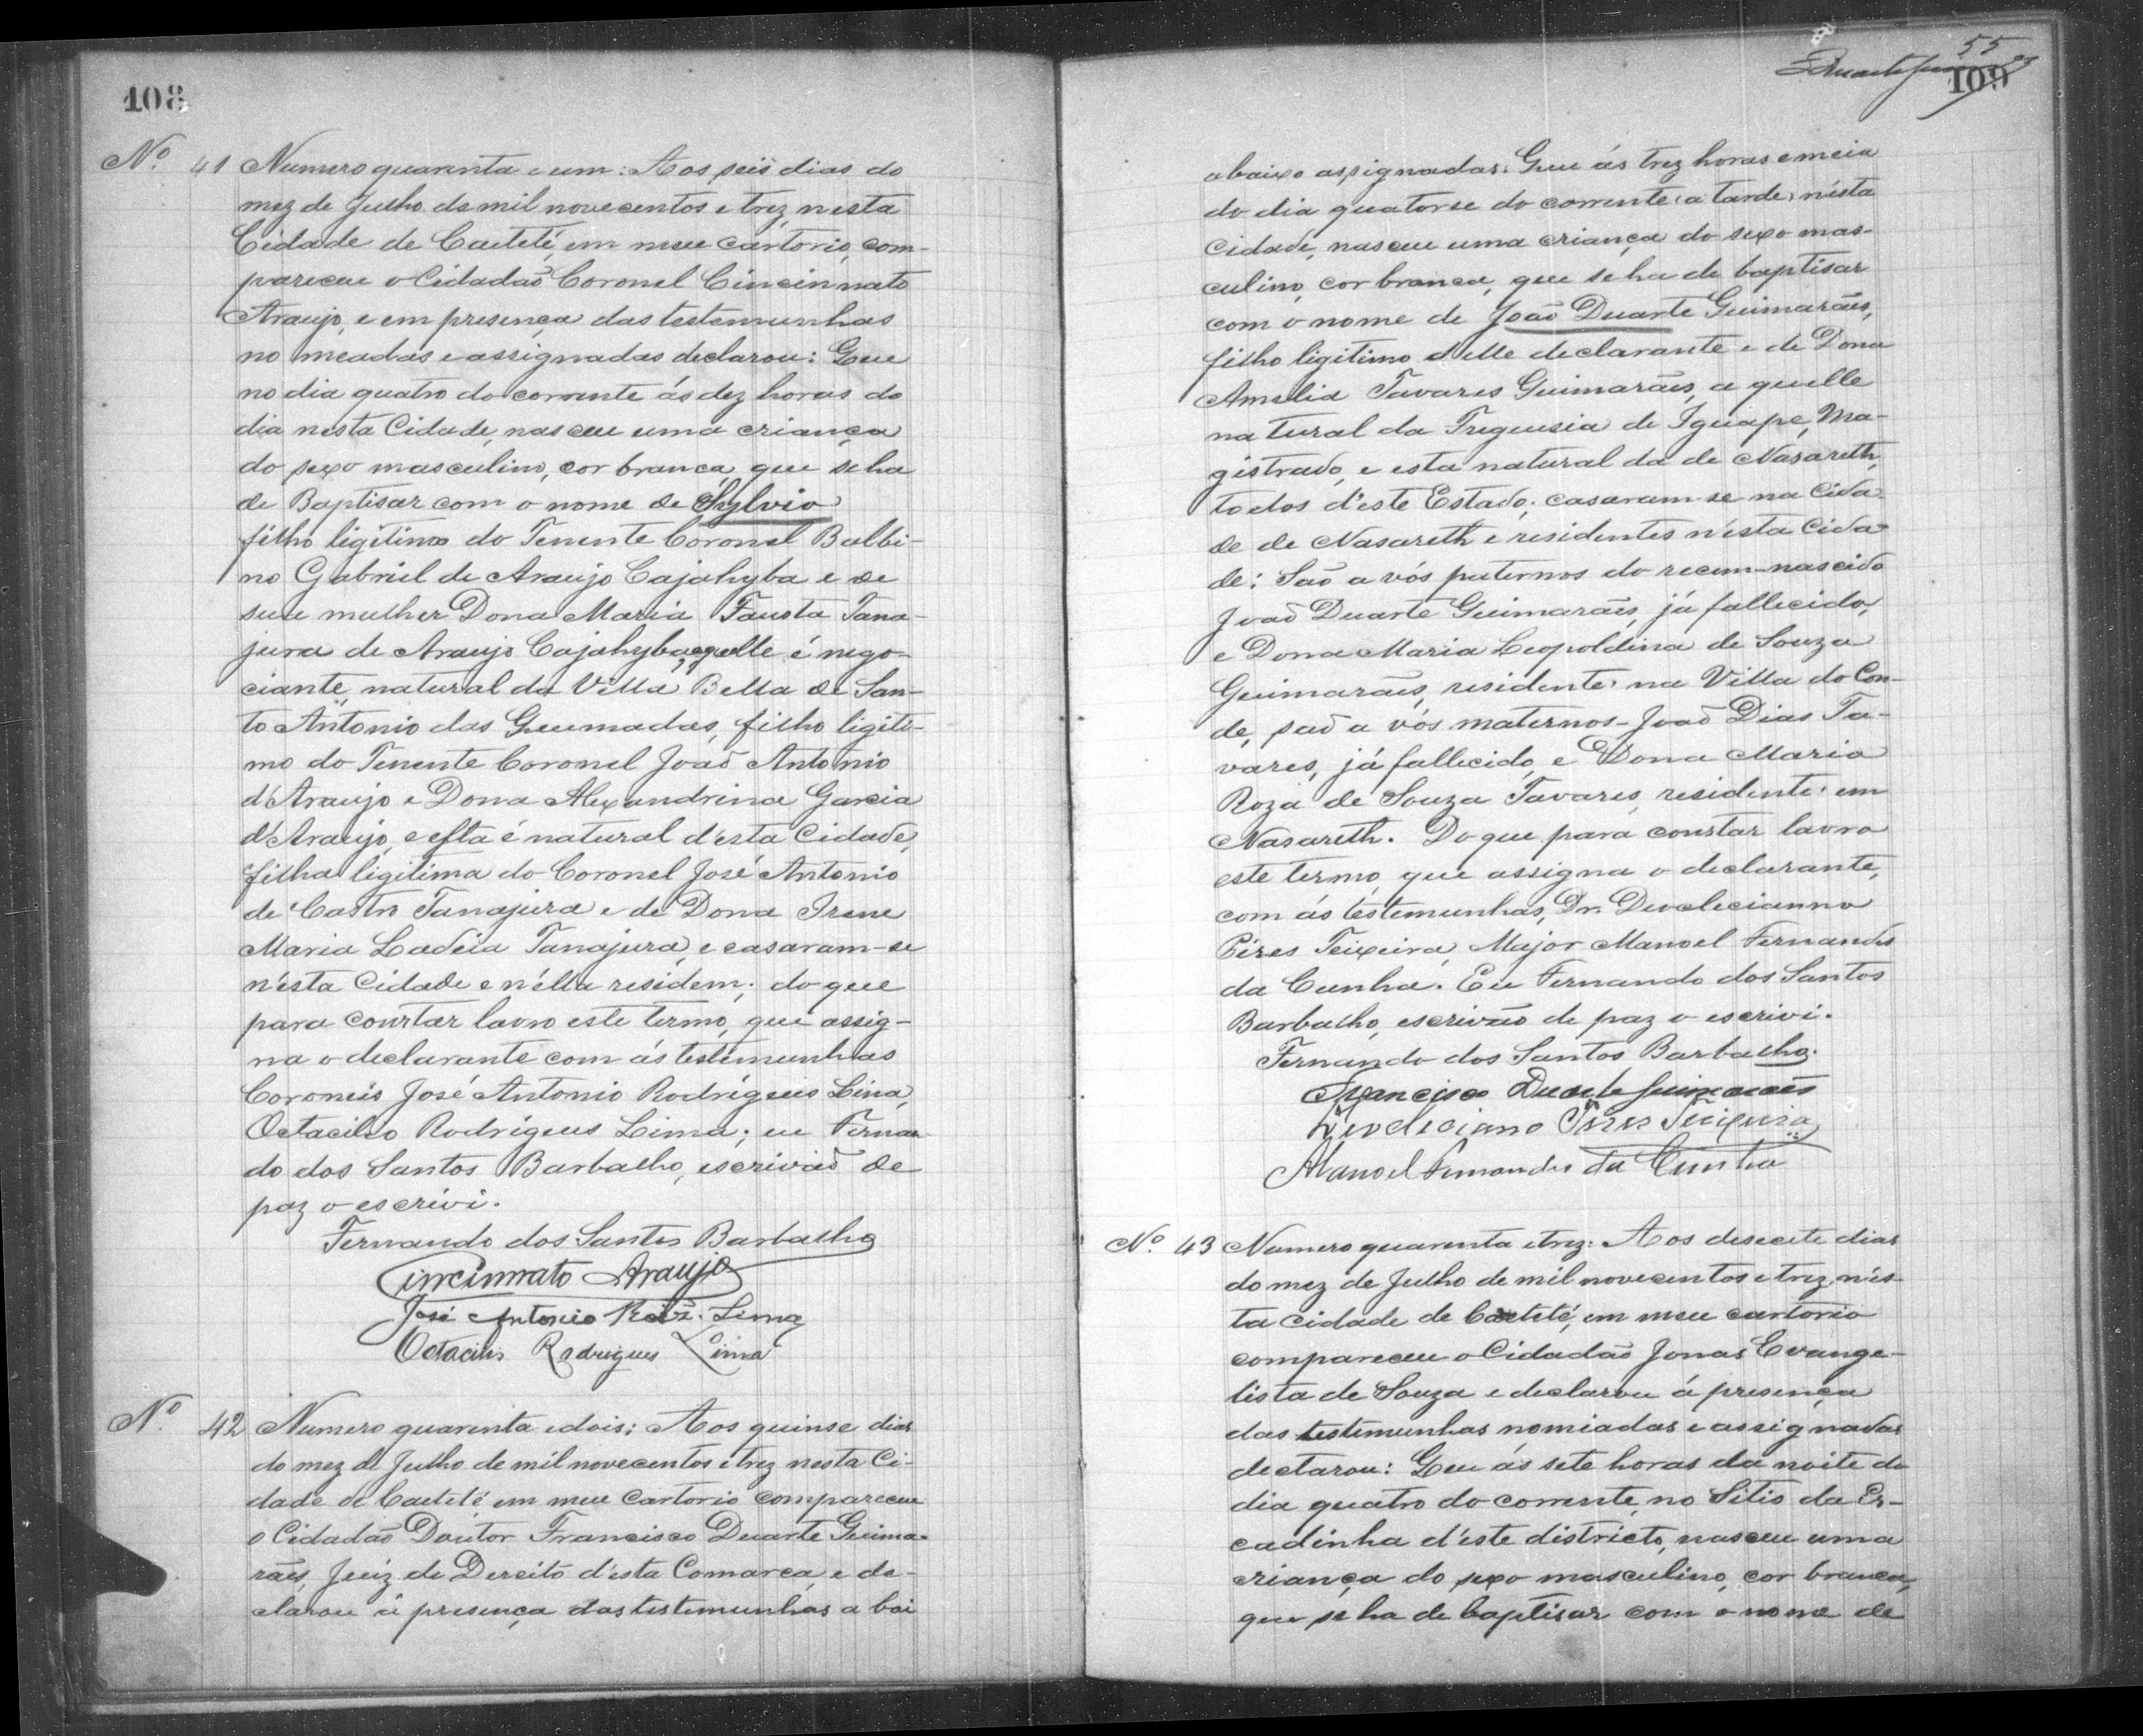 108
Nº 41 Numero quarenta e um: Aos seis dias do
mez de Julho de mil novecentos e trez, nesta
Cidade de Caeteté, em meu cartorio, com-
pareceu o Cidadaõ Coronel Cincinnato
Araujo, e em presença das testemunhas
no meadas e assignadas declarou: Que
no dia quatro do corrente ás dez horas do
dia nesta Cidade, nasceu uma criança
do sexo masculino, cor branca, que se ha
de Baptisar com o nome de Sylvio
filho ligitimo do Tenente Coronel Balbi-
no Gabriel de Araujo Cajahyba e de
sua mulher Dona Maria Fausta Tana-
jura de Araujo Cajahyba, aquelle é nego-
ciante, natural da Villa Bella de San-
to Antonio das Queimadas, filho ligiti-
mo do Tenente Coronel Joaõ Antonio
d'Araujo e Dona Alexandrina Garcia
d'Araujo, e esta é natural d'esta Cidade,
filha ligitima do Coronel José Antonio
de Castro Tanajura e de Dona Irene
Maria Ladeia Tanajura, e casaram-se
n'ésta Cidade e n'élla residem; do que
para constar lavro este termo, que assig-
na o declarante com ás testemunhas
Coroneis José Antonio Rodrigues Lima,
Octacilio Rodrigues Lima; eu Fernan-
do dos Santos Barbalho, escrivaõ de
paz o escrivi.
Fernando dos Santos Barbalho
Cincinnato Araujo
José Antonio Roiz. Lima
Octacilio Rodrigues Lima
Nº 42 Numero quarenta e dois: Aos quinse dias
do mez de Julho de mil novecentos e trez nesta Ci-
dade de Caeteté, em meu Cartorio compareceu
o Cidadaõ Doutor Francisco Duarte Guima-
rães, Juiz de Direito d'esta Comarca, e de-
clarou á presença das testemunhas a bai
55
109
abaixo assignadas: Que ás trez horas e meia
do dia quatorse do corrente (a tarde) nésta
Cidade, nasceu uma criança do sexo mas-
culino, cor branca, que se ha de baptisar
com o nome de Joaõ Duarte Guimarães,
filho ligitimo d'elle declarante e de Dona
Amelia Tavares Guimarães, a quelle
na tural da Freguesia de Iguape, Ma-
gistrado, e esta natural da de Nasareth,
todos d'éste Estado; casaram-se na Cida
de de Nasareth e residentes n'ésta Cida
de: Saõ a vós paternos do recem-nascido
Joaõ Duarte Guimarães, já fallecido,
e Dona Maria Leopoldina de Souza
Guimarães, residente na Villa do Con-
de, saõ a vós maternos - Joaõ Dias Ta-
vares, já fallecido, e Dona Maria
Roza de Souza Tavares, residente em
Nasareth. Do que para constar lavro
este termo, que assigna o declarante,
com ás testemunhas, Dr. Deocleciano
Pires Teixeira, Major Manoel Fernandes
da Cunha. Eu Fernando dos Santos
Barbalho, escrivaõ de paz o escrivi.
Fernando dos Santos Barbalho.
Francisco Duarte Guimarães
Deocleciano Pires Teixeira
Manoel Fernandes da Cunha
Nº 43 Numero quarenta e trez: Aos desecete dias
do mez de Julho de mil novecentos e trez, nés-
ta Cidade de Caeteté, em meu cartorio
compareceu o Cidadaõ Jonas Evange-
lista de Souza e declarou á presença
das testemunhas nomiadas e assignadas
declarou: Que ás sete horas da noite do
dia quatro do corrente, no Sitio da Es-
cadinha d'éste districto, nasceu uma
criança do sexo masculino, cor branca,
que se ha de baptisar com o nome de